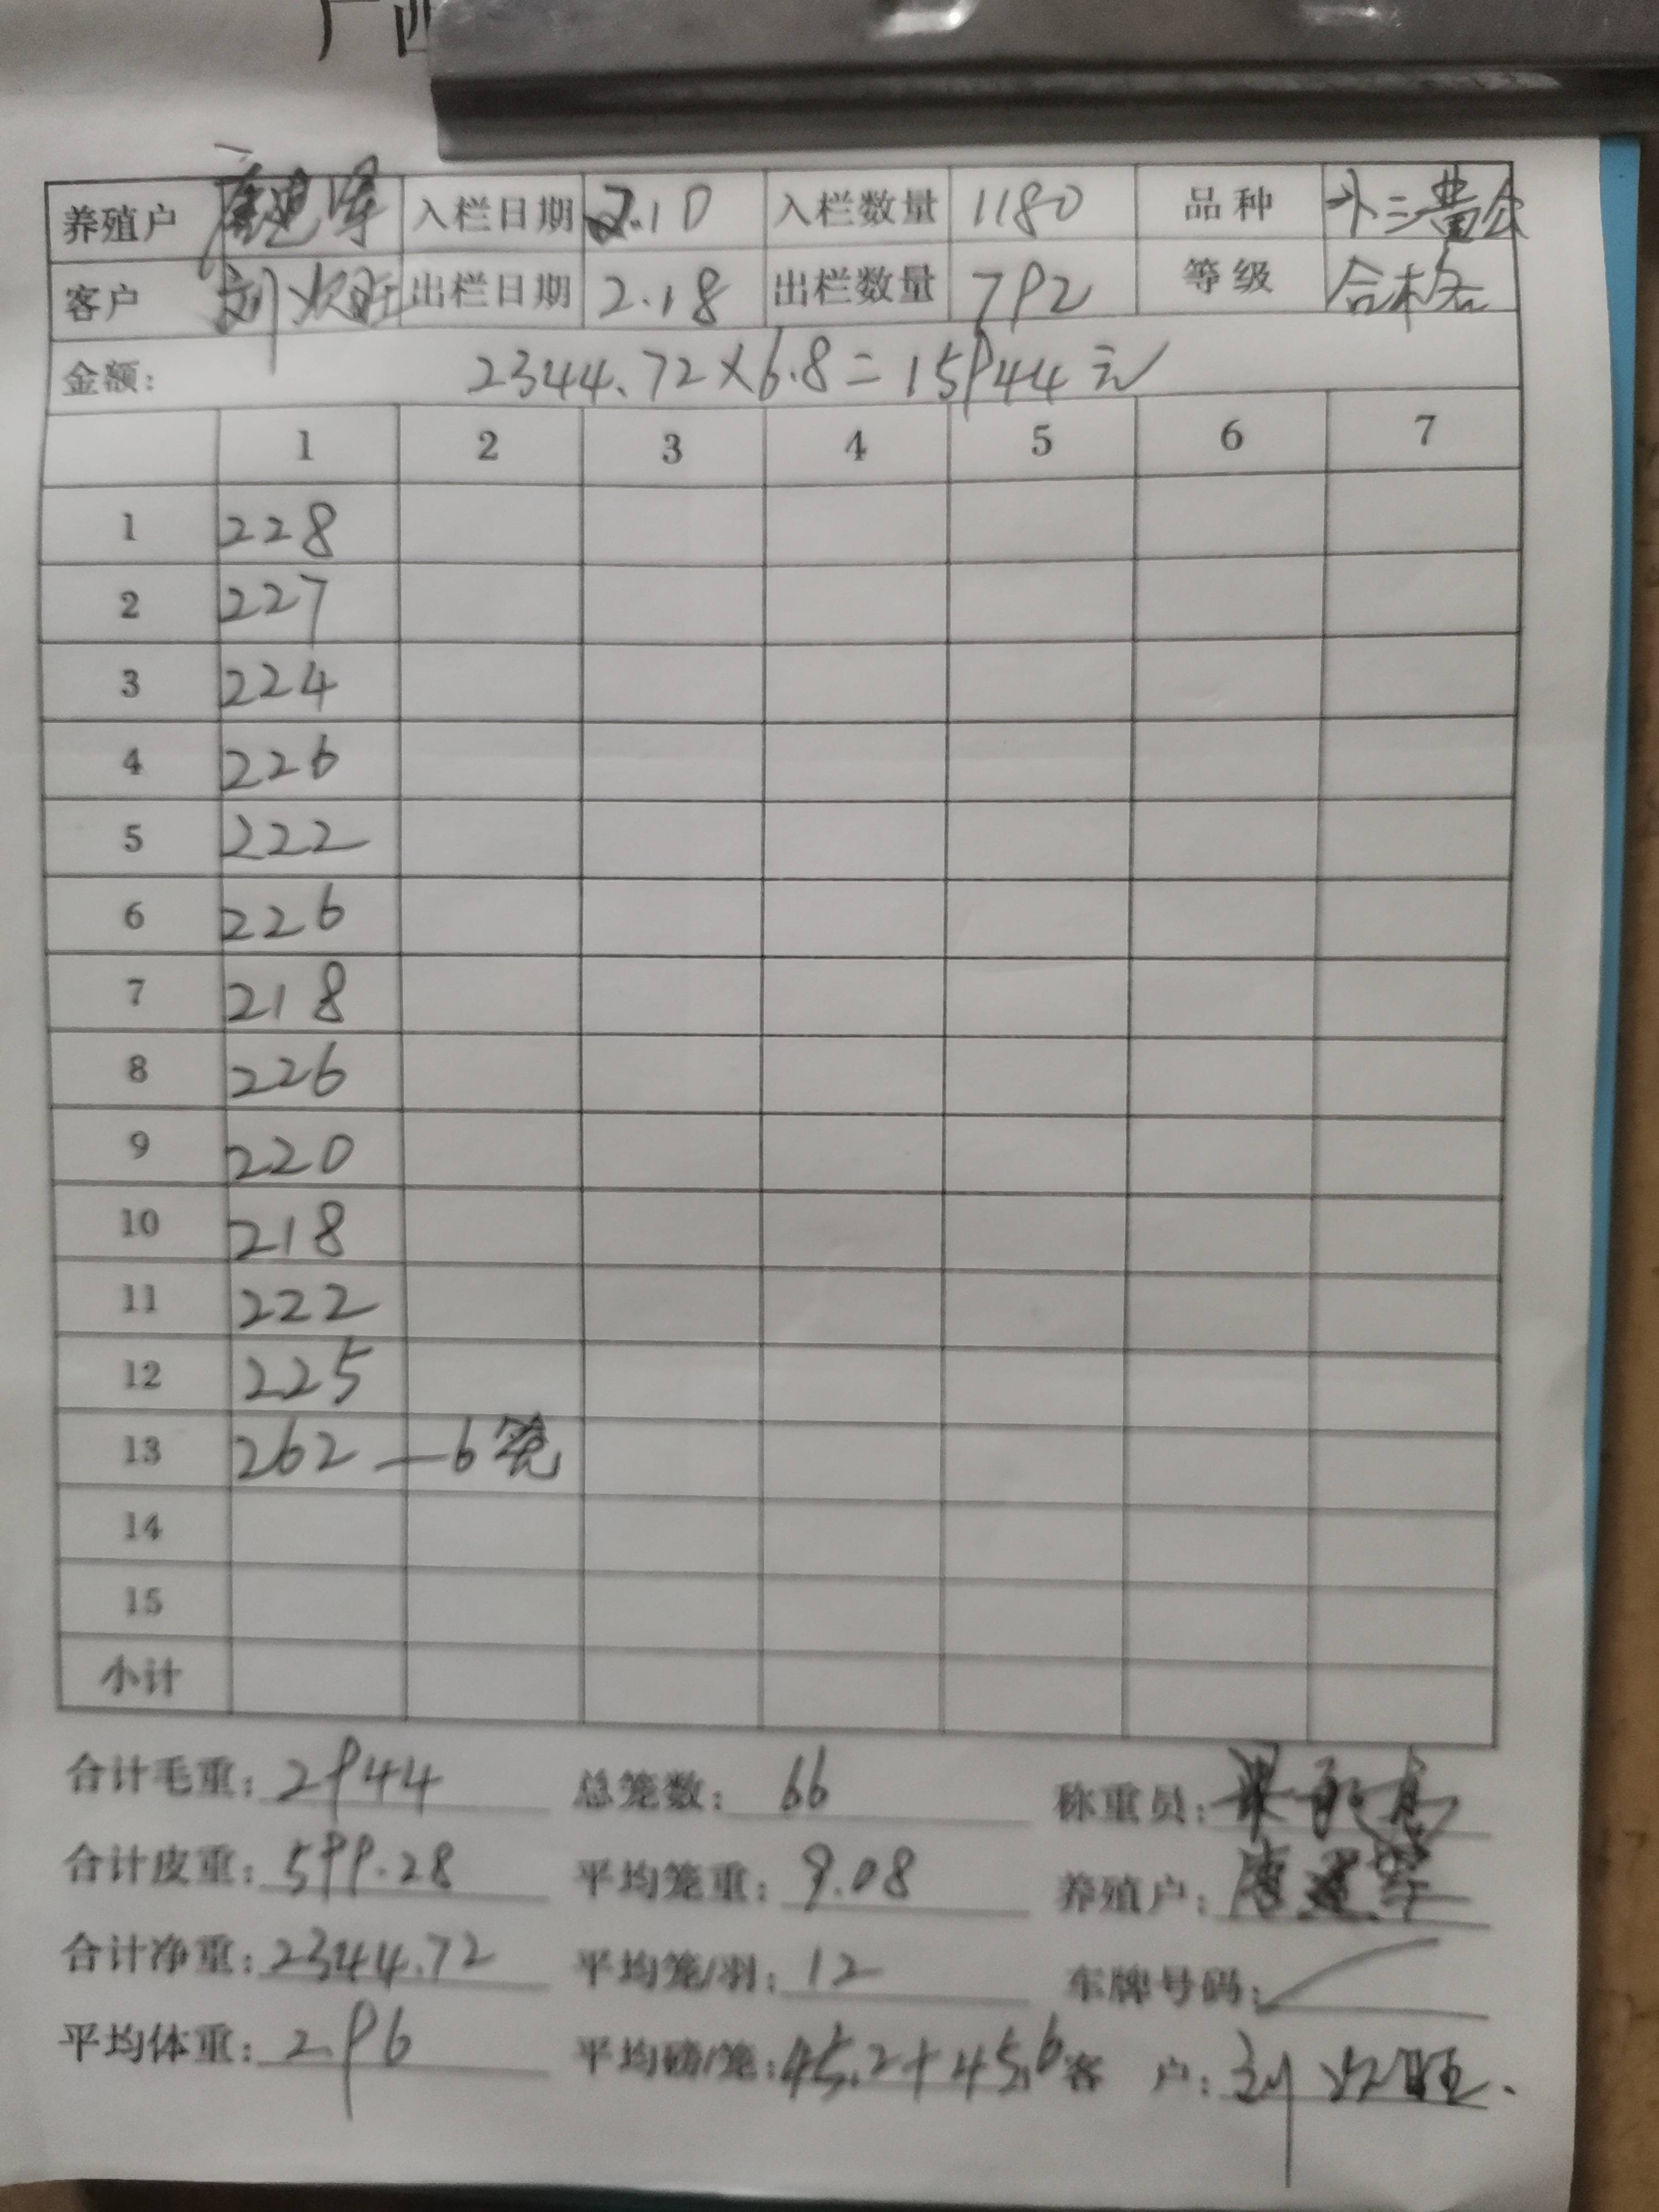 广西
养殖户 入栏日期 2.10 入栏数量 1180 品种
客户 出栏日期 2.18 出栏数量 792 等级 合格
金额: 2344.72×6.8=15944元
1 2 3 4 5 6 7
1 228
2 227
3 224
4 226
5 222
6 226
7 218
8 226
9 220
10 218
11 222
12 225
13 262 — 6笼
14
15
小计
合计毛重: 2944 总笼数: 66 称重员:
合计皮重: 599.28 平均笼重: 9.08 养殖户:
合计净重: 2344.72 平均笼/羽: 12 车牌号码:
平均体重: 2.96 平均磅/笼: 45.2+45.6 客 户: 刘